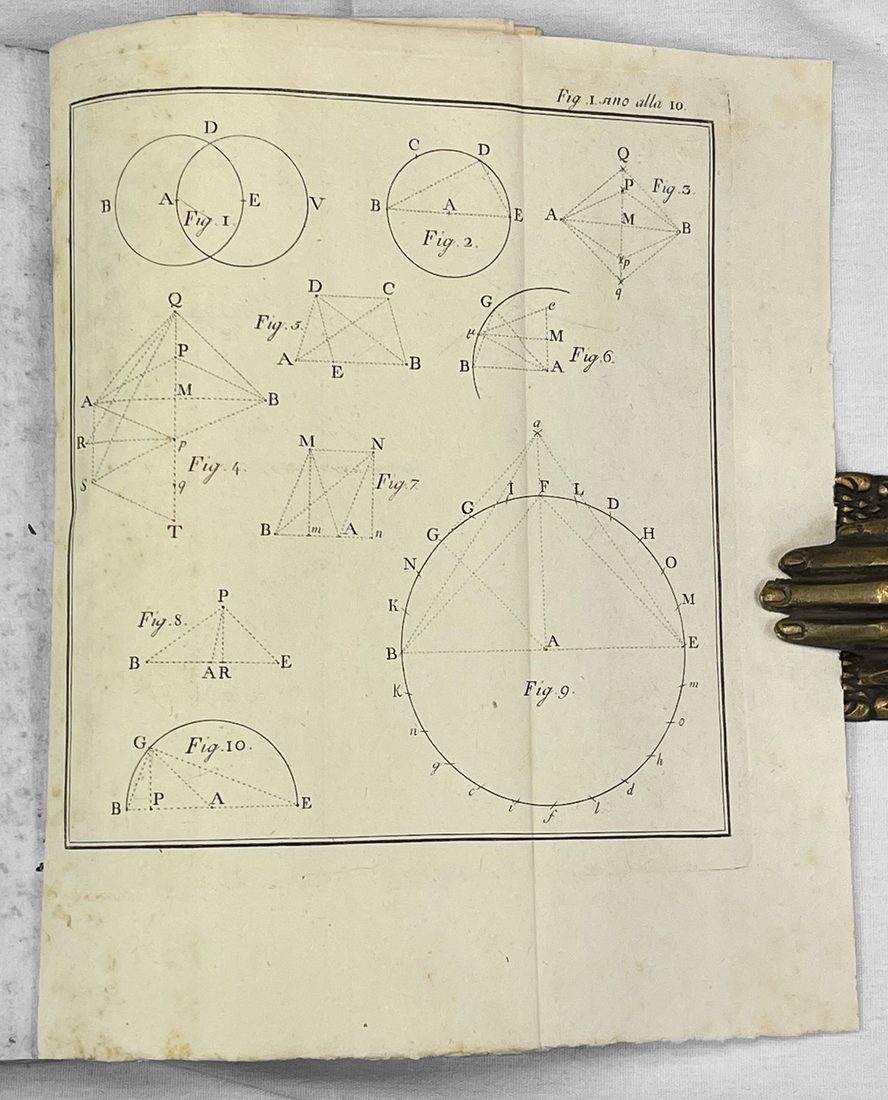 Fig. 1. sino alla 10.
D
B A E V
Fig. 1.
C D
B A E
Fig. 2.
Q
P Fig. 3.
A M B
p
q
Q
P
A M B
R p
Fig. 4.
S q
T
D C
Fig. 5.
A E B
G e
μ M
B A Fig. 6.
M N
Fig. 7.
B m A n
P
Fig. 8.
B A R E
a
G G I F L D
N H
K O
M
B A E
K Fig. 9. m
n o
g h
c i f l d
G Fig. 10.
B P A E